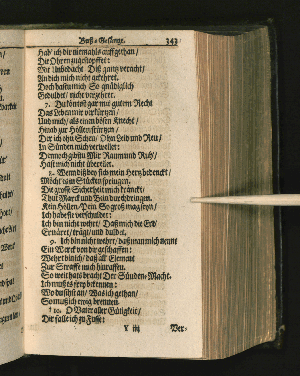 Buß-Gesänge. 343
Hab' ich dir niemahls auffgethan/
Die Ohren zugestopffet:
Mit Unbedacht Diß gantz veracht/
An dich mich nicht gekehret.
Doch hastu mich So gnädiglich
Geduldet/ nicht verzehret.
7. Du köntest zwar mit gutem Recht
Das Leben mir verkürtzen/
Und mich/ als einen bösen Knecht/
Hinab zur Höllen stürtzen/
Der ich ohn Scheu/ Ohn Leid und Reu/
In Sünden mich verweilet:
Dennoch gibstu Mir Raum und Ruh/
Hast mich nicht übereilt.
8. Wenn diß bey sich mein Hertz bedenckt/
Möcht' es in Stücken springen.
Die grosse Sicherheit mich kränckt/
Thut Marck und Bein durchdringen.
Kein Höllen-Pein So groß mag seyn/
Ich habe sie verschuldet:
Ich bin nicht wehrt/ Daß mich die Erd
Ernäret/ trägt/ und duldet.
9. Ich bin nicht wehrt/ daß man mich nennt
Ein Werck von dir geschaffen:
Wehrt bin ich/ daß all' Element
Zur Straffe mich hinraffen.
So weit hats bracht Der Sünden-Macht.
Ich muß es frey bekennen:
Wo du siehst an/ Was ich gethan/
So muß ich ewig brennen.
10. O Vater aller Gütigkeit/
Dir fall ich zu Fusse:
Y iij Ver-